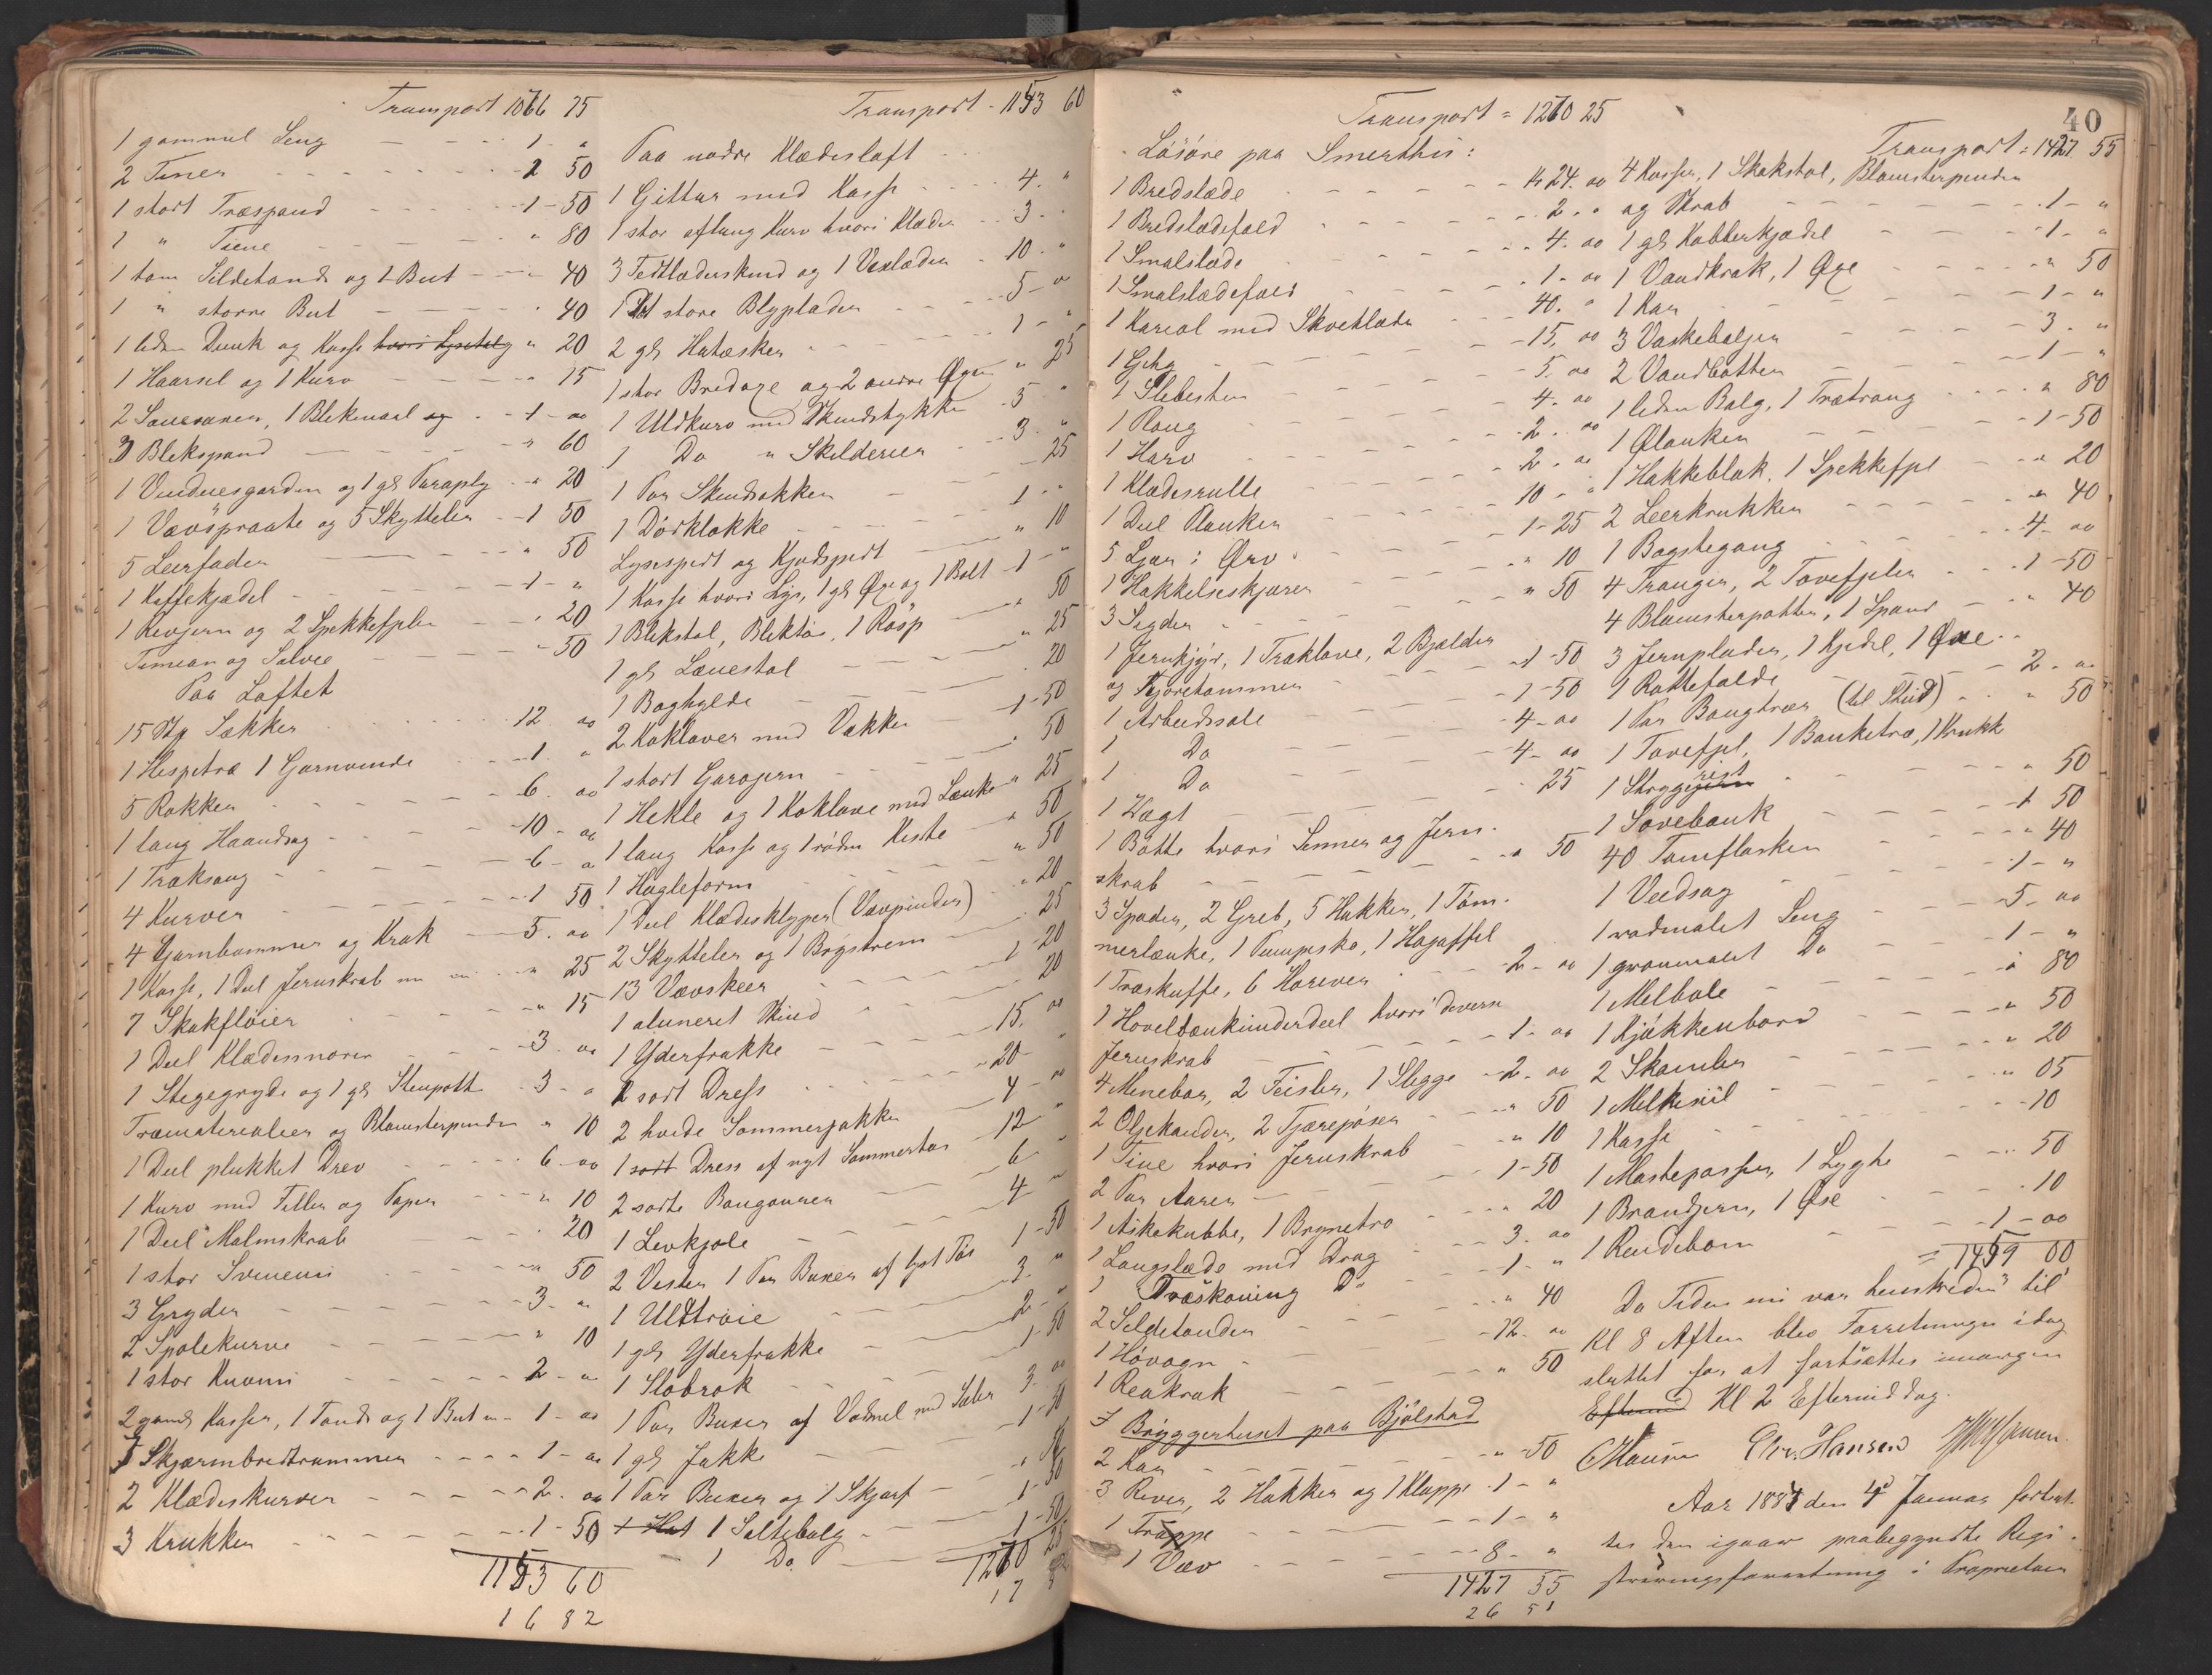 Transport 1066 75
1 gammel Seng - - - 1 - "
2 Tiner - - - 1 50
1 stort Træspand - - - 1 - 50
1 " Tiene - - - " 80
1 tom Sildetønde og 1 But - - - " 40
1 " større But - - - " 40
1 liden Dunk og Kasse " 20
1 Haarsel og 1 Kurv - - - " 15
1 Blekmaal og - - 1 - oo
3 Blekspand - - - " 60
1 gl Paraply - - " 20
1 og 5 Skytteler - - 1 50
5 Leerfade - - - " 50
1 Kaffekjædel - - - 1 - "
1 Revjern og 2 Spekkefjeler - - " 20
Timian og Salvie - - - " 50
Paa Loftet
15 Stk Sækker - - - 12 oo
1 Hespetræ 1 Garnvinde - - - 1 "
5 Rokker - - - 6 oo
1 lang Haandsag - - - 10 - oo
1 Træksaug - - - 6 - "
4 Kurver - - - 1 50
4 Garnbommer og Krak - - - 5 . oo
1 Kasse, 1 Deel Jernskrab " 25
7 Skakfløier - - - " 15
1 Deel Klædessnorer - - - 3 . oo
1 Stegegryde og 1 gl Stenpotte - 3 - "
Træmaterialier og Blomsterpinder " 10
1 Deel plukket Drev - - - 6 - oo
1 Kurv med Filler og Papir - - - " 10
1 Deel Malmskrab - - - 20
1 stor - - - " 50
3 Gryder - - - 3 . "
2 Spolekurve - - - " 10
1 stor - - - 2 - "
2 gamle Kasser, 1 Tønde og 1 But - 1 - oo
5 Skjærmbredtrammer - - - 1 - oo
2 Klædeskurver - - - 2 . oo
3 Krukker - - - 1 - 50
1153 60
1682
Transport - 1153 60
Paa nedre Klædesloft - - -
1 Gittar med Kasse - - - 4 . "
1 stor aflang Kurv hvori Klæder - - 3 . .
3 og 1 Voxlæder - 10 . "
1 Set store Blyplader - - - 5 - "
2 gl Hatæsker - - - 1 - "
1 stor Bredøxe og 2 andre Øxer " 25
1 Uldkurv med Skindstykker - 5 "
1 Do " Skilderier - 3 . "
1 Par Skindsokker - - - 25
1 Dørklokke - - - 1 - "
Lysespidt og Kjødspidt - - - " 10
1 Kasse hvori Lys, 1 gl Øxe og 1 Bolt - 1 - "
1 Blekstol, Blektøi, 1 Rasp - " 50
1 gl Lænestol - - - " 25
1 Boghylde - - - 20
2 Koklaver med Vakker - 1 - 50
1 stort Garojern - - - " 50
1 Hekle og 1 Koklave med Lænke " 25
1 lang Kasse og 1 rødm Kiste - - " 50
1 Hagleform - - - " 50
1 Deel Klædesklyper (Vævpinder) - - " 20
2 Skytteler og 1 - 25
13 Vævskeer - - - 1 - 20
1 aluneret Skind - - - 20
1 Yderfrakke - - - 15 . oo
1 sort Dress - - - 20 - "
2 hvide Sommerjakker - - - 4 - oo
1 Dress af nyt Sommertøi - 12 "
2 sorte - - - 6 - "
1 Livkjole - - - 4 "
2 Vester 1 Par Buxer af lyst Tøi 1 - 50
1 Uldtrøie - - - 3 "
1 gl Yderfrakke - - - 2 - "
1 Slobrok - - - 1 - 50
1 Par Buxer af Vadmel med 3 - oo
1 gl Jakke - - - 1 - 50
1 Par Buxer og 1 Skjærf - " 50
1 Saltebalg - - - 1 - 50
1 Do - - - 25
1260 25
Transport = 1260 25
Løsøre paa Smerthis:
1 Bredslæde - - - Kr 24 . oo
1 Bredslædefæld - - - 2 . "
1 Smalslæde - - - 4 . oo
1 Smalslædefæld - - - 1 - oo
1 Kareol med Skvetlæder - - - 40 . "
1 Gchg - - - 15 . oo
1 Slibesten - - - 5 . oo
1 Ploug - - - 4 . oo
1 Harv - - - 2 . oo
1 Klædesrulle - - - 2 . oo
1 Deel Planker - - - 10 - "
5 Ljaer i Orv - - - 1 - 25
1 Hakkelseskjærer - - - " 10
3 Segder - - - " 50
1 Jernkjør, 1 Træklave, 2 Bjelder
og Kjøretømmer - - - 1 - 50
1 Arbeidssæle - - - 1 - 50
1 Do - - - 4 - oo
1 Do - - - 4 - oo
1 Vægt - - - 25
1 Bøtte hvori Sømmer og Jern-
skrab - - - " 50
3 Spader, 2 Greb, 5 Hakker, 1 Tøm-
merlænke, 1 Pumpesko, 1 Høgaffel
1 Træskuffe, 6 Høriver - - 2 - oo
1 Høvelbænkunderdeel hvori diverse
Jernskrab - - - 1 - oo
4 Minebor, 2 Feisler, 1 Slegge - 2 - oo
2 Oljekander, 2 Tjærepøser - - " 50
1 Tine hvori Jernskrab - - " 10
2 Par Aarer - - - 1 - 50
1 Askekubbe, 1 Brynetro - - - " 20
1 Langslæde med Drag - - - 3 . oo
1 Træskoning Do - - - 1 - "
2 Sildetønder - - - " 40
1 Høvogn - - - 12 . oo
1 Reakrak - - - " 50
I Bryggerhuset paa Bjølstad
2 Kar - - - " 50
3 River, 2 Hakker og 1 Kluppe - 1 - "
1 Trappe - - - 1 - "
1 Væv - - - 8 - "
1427 55
26 51
40
Transport = 1427 55
4 Kasser, 1 Skakstol, Blomsterpinder
og Skrab - - - 1 - "
1 gl Kobberkjedel - - - 1 - "
1 Vandkrak, 1 Øxe - - - " 50
1 Kar - - - 1 - "
3 Vaskebaljer - - - 3 . "
2 Vandbøtter - - - 1 - "
1 liden Balg, 1 Trætraug - - - " 80
1 Ølanker - - - 1 - 50
1 Hakkeblok, 1 Spekkefjel - - " 20
2 Leerkrukker - - - " 40
1 Bagstegang - - - 4 - oo
4 Trauger, 2 Tovefjeler - - - 1 - 50
4 Blomsterpotter, 1 Spand - - " 40
3 Jernplader, 1 Kjedel, 1 Øxe - -
1 Rottefælde - - - 2 - oo
1 Par Baugtrær (til Stud) - - " 50
1 Tovefjel, 1 Banketræ, 1 Krukke
1 Strygerist - - - " 50
1 Sovebænk - - - 1 50
40 Tomflasker - - - " 40
1 Vedsag - - - 1 - "
1 rødmalet Seng - - - 5 - oo
1 grønmalet Do - - - 1 - "
1 Melbøle - - - " 80
1 Kjøkkenbord - - - " 50
2 Skamler - - - " 20
1 Melkesiil - - - " 05
1 Kasse - - - 10
1 Mastepasser, 1 Lygte - - - " 50
1 Brandjern, 1 Øse - - - " 10
1 Rendebom - - - 1 - oo
= 1459 00
Da Tiden nu var henskreden til
Kl 8 Aften blev Forretningen idag
sluttet for at fortsættes imorgen
Eftermd Kl 2 Eftermiddag.
CHansen Chr. Hansen
Aar 1884 den 4d Januar fortsat-
tes den igaar paabegyndte Regi-
streringsforretning i Proprietair